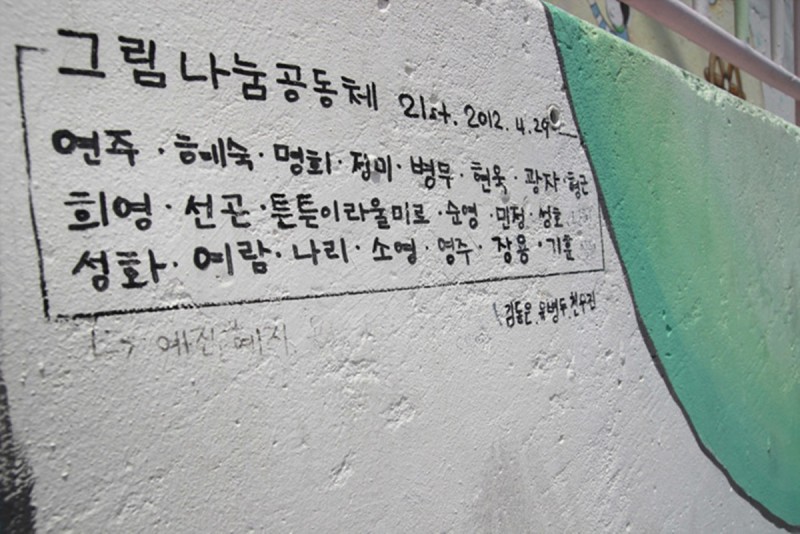 그림 나눔공동체 21st. 2012. 4. 29
연주 · 혜숙 · 명희 · 정미 · 병무 · 현욱 · 광자 · 형근
희영 · 선곤 · 튼튼이라울미르 · 순영 · 민정 · 성호
성화 · 여람 · 나리 · 소영 · 영주 · 장용 · 기훈
김동운. 유병두.
↳ 예진. 예지